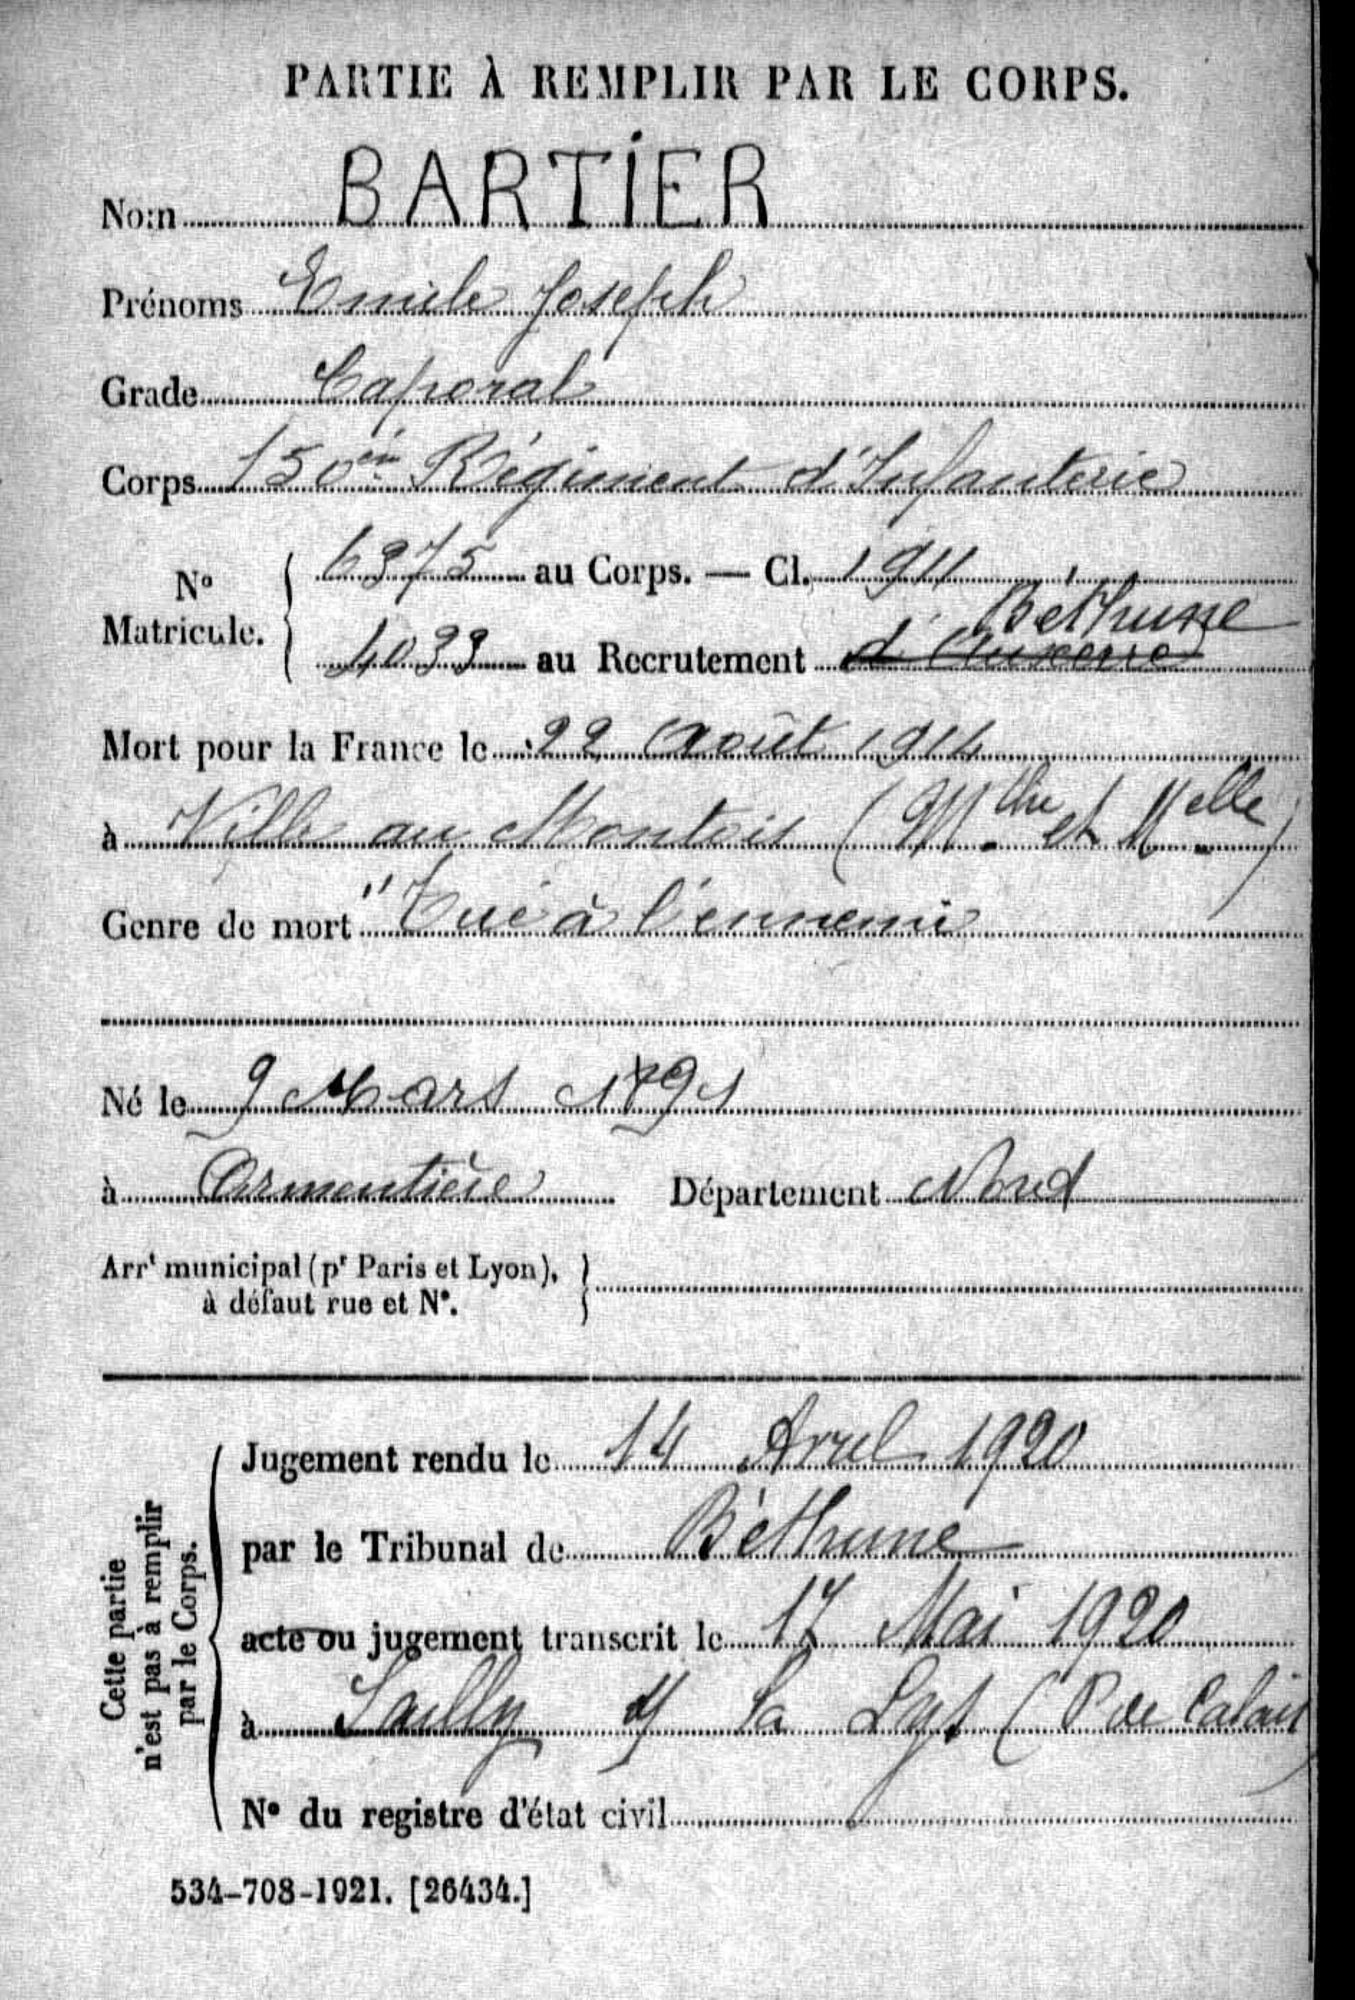 PARTIE À REMPLIR PAR LE CORPS.
Nom BARTIER
Prénoms Emile Joseph
Grade Caporal
Corps 150ème Régiment d'Infanterie
N° Matricule. { 6375 au Corps. — Cl. 1911
4033 au Recrutement d'Auxerre Béthune
Mort pour la France le 22 Août 1914
à Ville au Montois (Mthe et Melle)
Genre de mort "Tué à l'ennemi
Né le 9 Mars 1891
à Armentière Département Nord
Arrt municipal (pr Paris et Lyon), }
à défaut rue et N°.
Cette partie
n'est pas à remplir
par le Corps.
Jugement rendu le 14 Avril 1920
par le Tribunal de Béthune
acte ou jugement transcrit le 17 Mai 1920
à Sailly s/ la Lys (P de Calais)
N° du registre d'état civil
534-708-1921. [26434.]